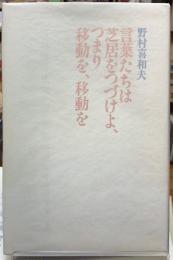 野村喜和夫
言葉たちは
芝居をつづけよ、
つまり
移動を、移動を